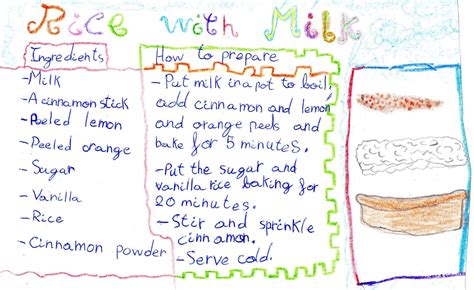 Rice with Milk
Ingredients
-Milk
-A cinnamon stick
-Peeled lemon
-Peeled orange
-Sugar
-Vanilla
-Rice
-Cinnamon powder
How to prepare
-Put milk in a pot to boil,
add cinnamon and lemon
and orange peels and
bake for 5 minutes.
-Put the sugar and
vanilla rice baking for
20 minutes.
-Stir and sprinkle
cinnamon.
-Serve cold.